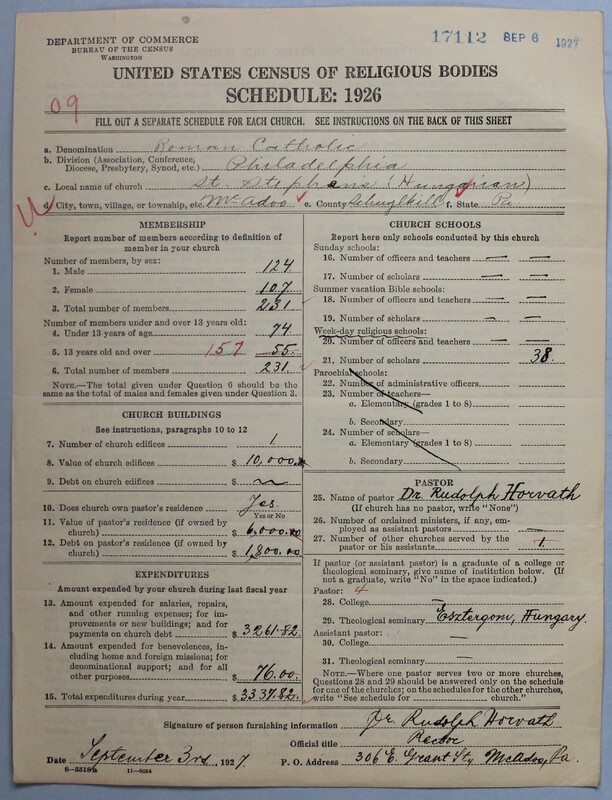 DEPARTMENT OF COMMERCE
BUREAU OF THE CENSUS
WASHINGTON
17112 SEP 6 1927
UNITED STATES CENSUS OF RELIGIOUS BODIES
SCHEDULE: 1926
09
FILL OUT A SEPARATE SCHEDULE FOR EACH CHURCH. SEE INSTRUCTIONS ON THE BACK OF THIS SHEET
a. Denomination Roman Catholic
b. Division (Association, Conference, Diocese, Presbytery, Synod, etc.) Philadelphia
c. Local name of church St. Stephens (Hungarian)
d. City, town, village, or township, etc. McAdoo e. County Schuylkill f. State Pa
MEMBERSHIP
Report number of members according to definition of
member in your church
Number of members, by sex:
1. Male 124
2. Female 107
3. Total number of members 231
Number of members under and over 13 years old:
4. Under 13 years of age 74
5. 13 years old and over 157 55
6. Total number of members 231
NOTE.—The total given under Question 6 should be the
same as the total of males and females given under Question 3.
CHURCH BUILDINGS
See instructions, paragraphs 10 to 12
7. Number of church edifices 1
8. Value of church edifices $ 10,000.00
9. Debt on church edifices $
10. Does church own pastor's residence Yes
Yes or No
11. Value of pastor's residence (if owned by
church) $ 6,000.00
12. Debt on pastor's residence (if owned by
church) $ 1,800.00
EXPENDITURES
Amount expended by your church during last fiscal year
13. Amount expended for salaries, repairs,
and other running expenses; for im-
provements or new building; and for
payments on church debt $ 3261.82
14. Amount expended for benevolences, in-
cluding home and foreign missions; for
denominational support; and for all
other purposes $ 76.00
15. Total expenditures during year $ 3337.82
CHURCH SCHOOLS
Report here only schools conducted by this church
Sunday schools:
16. Number of officers and teachers — —
17. Number of scholars — —
Summer vacation Bible schools:
18. Number of officers and teachers — —
19. Number of scholars — —
Week-day religious schools:
20. Number of officers and teachers — —
21. Number of scholars 38.
Parochial schools:
22. Number of administrative officers
23. Number of teachers—
a. Elementary (grades 1 to 8)
b. Secondary
24. Number of scholars—
a. Elementary (grades 1 to 8)
b. Secondary
PASTOR
25. Name of pastor Dr. Rudolph Horvath
(If church has no pastor, write "None")
26. Number of ordained ministers, if any, em-
ployed as assistant pastors —
27. Number of other churches served by the
pastor or his assistants 1
If pastor (or assistant pastor) is a graduate of a college or
theological seminary, give name of institution below. (If
not a graduate, write "No" in the space indicated.)
Pastor: 4
28. College —
29. Theological seminary Esztergom, Hungary.
Assistant pastor:
30. College —
31. Theological seminary —
NOTE.—Where one pastor serves two or more churches,
Questions 28 and 29 should be answered only on the schedule
for one of the churches; on the schedules for the other churches,
write "See schedule for ........ church."
Signature of person furnishing information Dr. Rudolph Horvath
Official title Rector
Date September 3rd, 1927. P. O. Address 306 E. Grant St, McAdoo, Pa.
8—5518a 11—9064